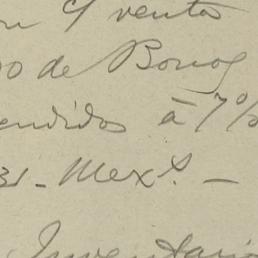 n c/ venta
00 de Bonos
endidos à 7%
31 - Mex$. -
Inventario